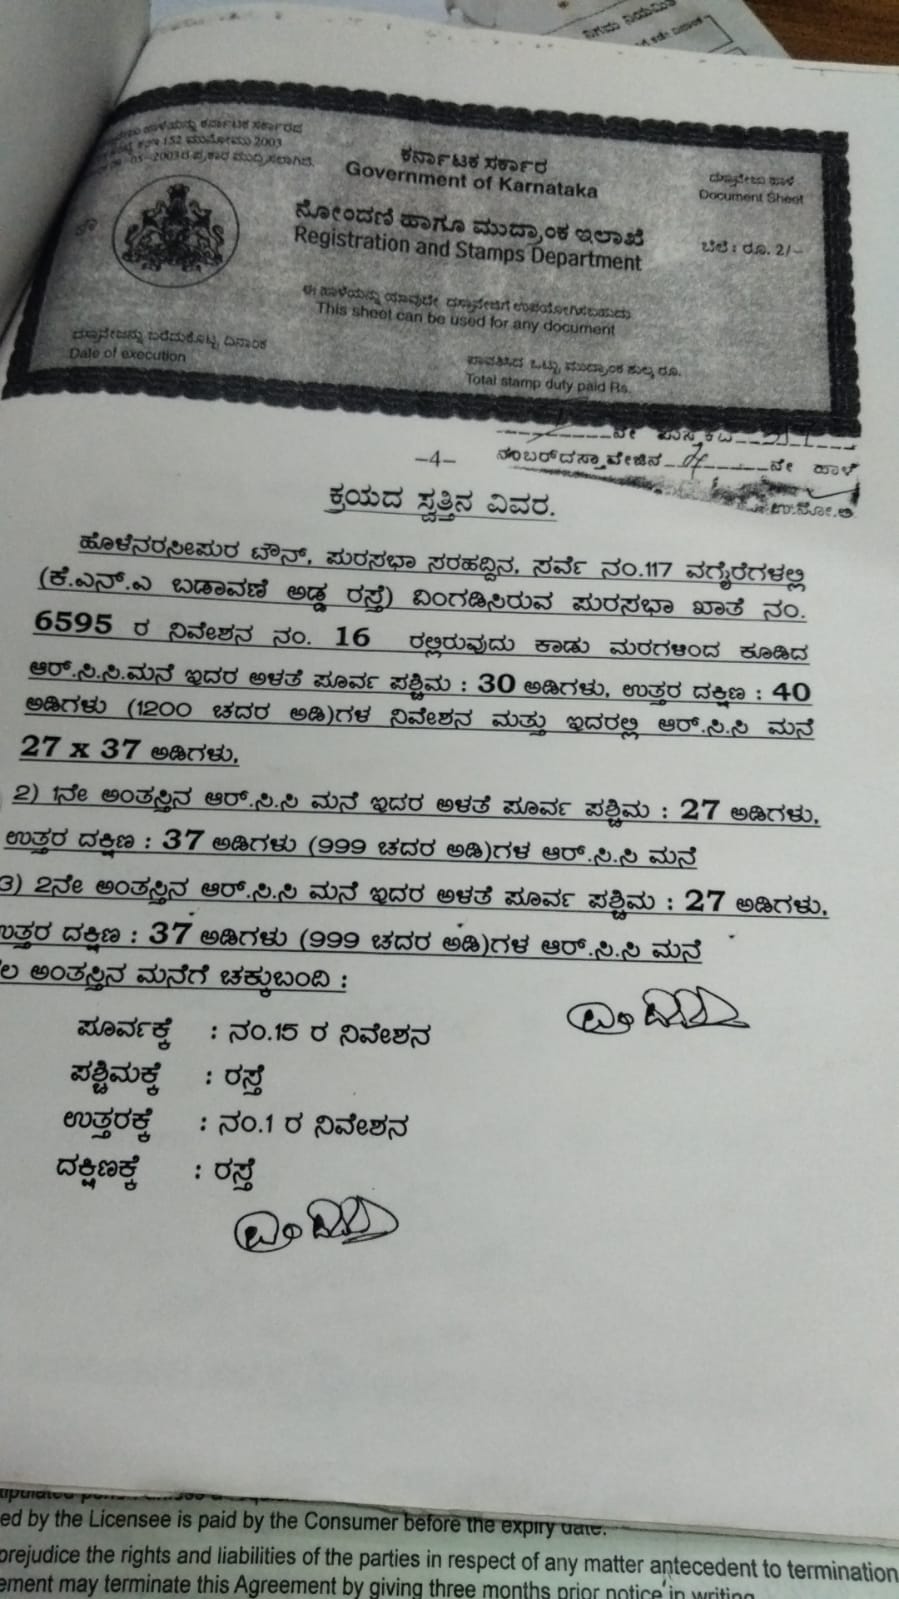 ನಿಗಮ ನಿಯಮಿತ
ಹಾಳೆಯನ್ನು ಕರ್ನಾಟಕ ಸರ್ಕಾರದ
152 ಮುನೋಮು 2003
-05-2003ರ ಪ್ರಕಾರ ಮುದ್ರಿಸಲಾಗಿದೆ.
ಕರ್ನಾಟಕ ಸರ್ಕಾರ
Government of Karnataka
ದಸ್ತಾವೇಜು ಹಾಳೆ
Document Sheet
ನೋಂದಣಿ ಹಾಗೂ ಮುದ್ರಾಂಕ ಇಲಾಖೆ
Registration and Stamps Department
ಬೆಲೆ : ರೂ. 2/-
ಈ ಹಾಳೆಯನ್ನು ಯಾವುದೇ ದಸ್ತಾವೇಜಿಗೆ ಉಪಯೋಗಿಸಬಹುದು
This sheet can be used for any document
ದಸ್ತಾವೇಜನ್ನು ಬರೆದುಕೊಟ್ಟ ದಿನಾಂಕ
Date of execution
ಪಾವತಿಸಿದ ಒಟ್ಟು ಮುದ್ರಾಂಕ ಶುಲ್ಕ ರೂ.
Total stamp duty paid Rs.
ನೇ ಪುಸ್ತಕದ
ನಂಬರ್‌ದಸ್ತಾವೇಜಿನ ನೇ ಹಾಳೆ
ಉ.ನೋ.ಅ
–4–
ಕ್ರಯದ ಸ್ವತ್ತಿನ ವಿವರ.
ಹೊಳೆನರಸೀಪುರ ಟೌನ್, ಪುರಸಭಾ ಸರಹದ್ದಿನ, ಸರ್ವೆ ನಂ.117 ವಗೈರೆಗಳಲ್ಲಿ
(ಕೆ.ಎನ್.ಎ ಬಡಾವಣೆ ಅಡ್ಡ ರಸ್ತೆ) ವಿಂಗಡಿಸಿರುವ ಪುರಸಭಾ ಖಾತೆ ನಂ.
6595 ರ ನಿವೇಶನ ನಂ. 16 ರಲ್ಲಿರುವುದು ಕಾಡು ಮರಗಳಿಂದ ಕೂಡಿದ
ಆರ್.ಸಿ.ಸಿ.ಮನೆ ಇದರ ಅಳತೆ ಪೂರ್ವ ಪಶ್ಚಿಮ : 30 ಅಡಿಗಳು, ಉತ್ತರ ದಕ್ಷಿಣ : 40
ಅಡಿಗಳು (1200 ಚದರ ಅಡಿ)ಗಳ ನಿವೇಶನ ಮತ್ತು ಇದರಲ್ಲಿ ಆರ್.ಸಿ.ಸಿ ಮನೆ
27 x 37 ಅಡಿಗಳು.
2) 1ನೇ ಅಂತಸ್ತಿನ ಆರ್.ಸಿ.ಸಿ ಮನೆ ಇದರ ಅಳತೆ ಪೂರ್ವ ಪಶ್ಚಿಮ : 27 ಅಡಿಗಳು.
ಉತ್ತರ ದಕ್ಷಿಣ : 37 ಅಡಿಗಳು (999 ಚದರ ಅಡಿ)ಗಳ ಆರ್.ಸಿ.ಸಿ ಮನೆ
3) 2ನೇ ಅಂತಸ್ತಿನ ಆರ್.ಸಿ.ಸಿ ಮನೆ ಇದರ ಅಳತೆ ಪೂರ್ವ ಪಶ್ಚಿಮ : 27 ಅಡಿಗಳು.
ಉತ್ತರ ದಕ್ಷಿಣ : 37 ಅಡಿಗಳು (999 ಚದರ ಅಡಿ)ಗಳ ಆರ್.ಸಿ.ಸಿ ಮನೆ
ಅಂತಸ್ತಿನ ಮನೆಗೆ ಚಕ್ಕುಬಂದಿ :
ಪೂರ್ವಕ್ಕೆ : ನಂ.15 ರ ನಿವೇಶನ
ಪಶ್ಚಿಮಕ್ಕೆ : ರಸ್ತೆ
ಉತ್ತರಕ್ಕೆ : ನಂ.1 ರ ನಿವೇಶನ
ದಕ್ಷಿಣಕ್ಕೆ : ರಸ್ತೆ
ed by the Licensee is paid by the Consumer before the expiry date.
prejudice the rights and liabilities of the parties in respect of any matter antecedent to termination
ement may terminate this Agreement by giving three months prior notice in writing